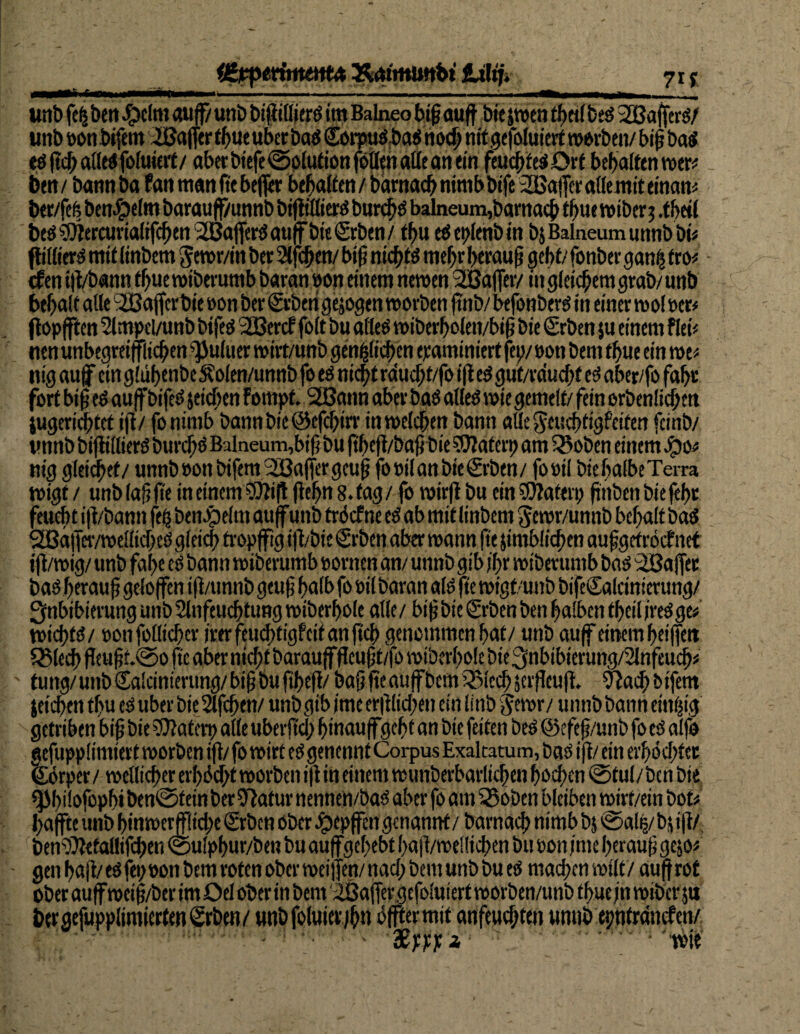 Experimenta Raimundi Lilij. 715
vnd setz den Helm auff/ vnd distilliers im Balneo biß auff die zwen theil des Wassers/
vnd von disem Wasser thue uber das Corpus das noch nit gesoluiert worden/ biß das
es sich alles soluiert/ aber diese Solution sollen alle an ein feuchtes Ort behalten wer⸗
den / dann da kan man sie besser behalten / darnach nimb dise Wasser alle mit einan⸗
der/setz den Helm darauff/unnd distilliers durchs balneum, darnach thue wider 3. theil
des Mercurialischen Wassers auff die Erden / thu es eylend in dz Balneum unnd di⸗
stilliers mit lindem Fewr/in der Aschen/ biß nichts mehr herauß geht/ sonder gantz tro⸗
cken ist/dann thue widerumb daran von einem newen Wasser/ in gleichem grad/ und
behalt alle Wasser die von der Erden gezogen worden sind/ besonders in einer wol ver⸗
stopfften Ampel/und dises Werck solt du alles widerholen/biß die Erden zu einem klei⸗
nen unbegreifflichen Puluer wirt/und gentzlichen examiniert sey/ von dem thue ein we⸗
nig auff ein glühende Kolen/unnd so es nicht räucht/so ist es gut/räucht es aber/so fahr
fort biß es auff dises zeichen kompt. Wann aber das alles wie gemelt/ fein ordenlichen
zugerichtet ist / so nimb dann die Geschirr in welchen dann alle Feuchtigkeiten seind/
vnnd distilliers durchs Balneum, biß du sihest/daß die Matery am Boden einem Ho⸗
nig gleichet / unnd von disem Wasser geuß so vil an die Erden / so vil die halbe Terra
wigt / und laß sie in einem Mist stehn 8. tag / so wirst du ein Matery finden die sehr
feucht ist/dann setz den Helm auff und tröckne es ab mit lindem Fewr/unnd behalt das
Wasser/wellliches gleich tropffig ist/die Erden aber wann sie zimblichen außgetröcknet
ist/wig/ und fahe es dann widerumb vornen an/ unnd gib ihr widerumb das Wasser
das herauß geloffen ist/unnd geuß halb so vil daran als sie wigt/und dise Calcinierung/
Inbibierung und Anfeuchtung widerhole alle / biß die Erden den halben theil jres ge⸗
wichts / von sollicher jrer feuchtigkeit an sich genommen hat / und auff einem heissen
Blech fleußt. So sie aber nicht darauff fleußt/so widerhole die Inbibierung/Anfeuch⸗
tung/ und Calcinierung/ biß du sihest/ daß sie auff dem Blech zerfleußt. Nach disem
zeichen thu es uber die Aschen/ und gib ime erstlichen ein lind Fewr / unnd dann einhig
getriben biß die Matery alle ubersich hinauff geht an die seiten des Gefeß/und so es also
gesupplimiert worden ist/ so wirt es genennt Corpus Exaltatum, das ist / ein erhöchter
Cörper / wellicher erhöcht worden ist in einem wunderbarlichen hochen Stul / den die
Philosophi den Stein der Natur nennen/das aber so am Boden bleiben wirt/ein bot⸗
haffte und hinwerffliche Erden oder Hepffen genannt / darnach nimb dz Saltz/ dz ist/
den Metallischen Sulphur/den du auffgehebt hast/wellichen du von jme herauß gezo⸗
gen hast/ es sey von dem roten oder weissen/ nach dem und du es machen wilt / auff rot
oder auff weiß/der im Oel oder in dem Wasser gesoluiert worden/und thue jn wider zu
der gesupplimierten Erden/ und soluier jhn öffter mit anfeuchten unnd eyntråncken/
Xxxx 2 wie